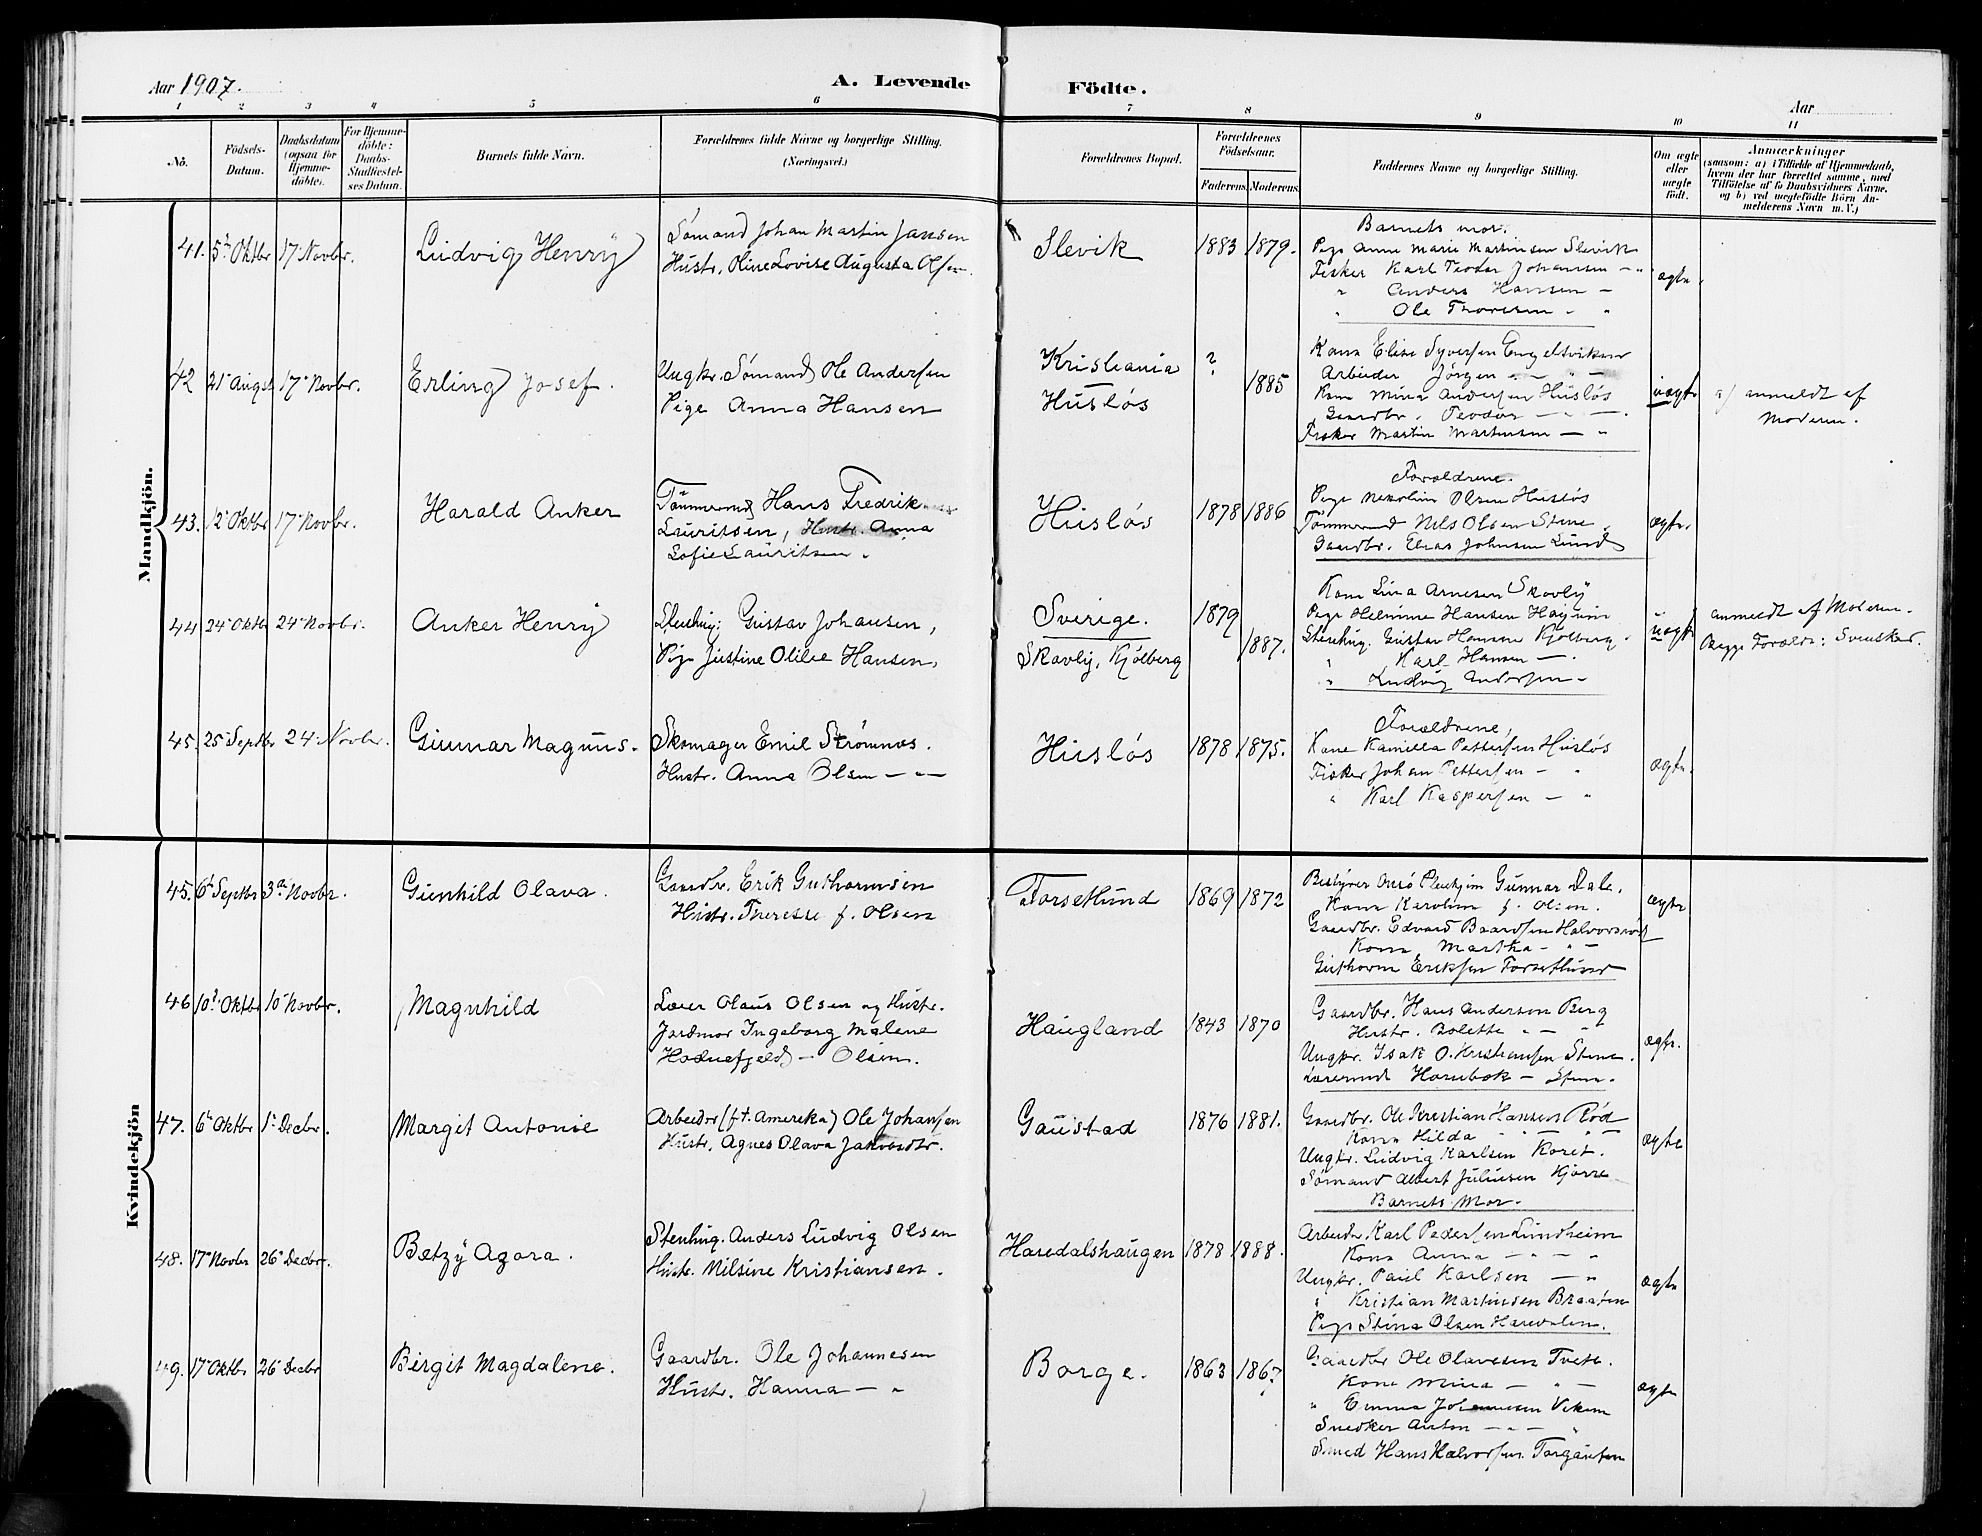 Aar 1907.
A. Levende Födte.
Aar
1 2 3 4 5 6 7 8 9 10 11
No.
Födsels-
Datum.
Daabsdatum
(ogsaa for
Hjemme-
döbte).
For Hjemme-
döbte:
Daabs-
Stadfæstel-
ses Datum.
Barnets fulde Navn.
Forældrenes fulde Navne og borgerlige Stilling.
(Næringsvei.)
Forældrenes Bopæl.
Forældrenes
Födselsaar.
Faderens. Moderens.
Faddernes Navne og borgerlige Stilling.
Om ægte
eller
uægte
födt.
Anmærkninger
(saasom: a) i Tilfælde af Hjemmedaab,
hvem der har forrettet samme, med
Tilföielse af to Daabsvidners Navne.
og b) ved uegtefödte Börn An-
melderens Navn m. V.)
Mandkjön.
41. 5' Oktbr 17' Novbr. Ludvig Henry
Sömand Johan Martin Jansen
Hustr. Oline Lovise Augusta Olsen
Slevik 1883 1879.
Barnets mor.
Pige Anne Marie Martinsen Slevik
Fisker Karl Teodor Johansen — "
" Anders Hansen —
" Ole Thoresen - "
ægte.
42 21' Augst 17' Novbr. Erling Josef.
Ungkr. Sömand Ole Andersen
Pige Anna Hansen
Kristiania
Husløs
? 1885
Kone Elise Syversen Engelsviken
Arbeider Jörgen — " —
Kone Mina Andersen Husløs
Gaardbr. Teodor — " —
Fisker Martin Martinsen — "
uægte
a/ anmeldt af
Moderen.
43. 12' Oktbr 17' Novbr. Harald Anker
Tömmermd Hans Fredrik
Lauritsen, Hustr. Anna
Sofie Lauritsen.
Husløs 1878 1886
Forældrene.
Pige Olsen Husløs
Tömmermd Nils Olsen Stene.
Gaardbr. Elias Johnsen Lund
ægte.
44 24' Oktbr 24' Novbr. Anker Henry
Stenhug. Gustav Johansen,
Pige Justine Otilie Hansen,
Sverige.
Skovly, Kjölberg
1879 1887.
Kone Lina Arnesen Skovly
Pige Helmine Hansen
Stenhug. Gustav Hansen Kjölberg.
" Karl Hansen —
" Ludvig Andersen -
uægt
anmeldt af Moderen.
Begge Forældr: Svensker.
45. 25' Septbr 24' Novbr. Gunnar Magnus.
Skomager Emil Strömnæs.
Hustr. Anna Olsen — " —
Husløs 1878 1875.
Forældrene,
Kone Kamilla Pettersen Husløs
Fisker Johan Pettersen — "
" Karl Kaspersen — "
ægte.
Kvindekjön
45. 6' Septbr 3die Novbr. Gunhild Olava.
Gaardbr. Erik Guthormsen
Hustr. Theresse f. Olsen
Torsetlund 1869 1872
Bestyrer Onsö Pleiehjem Gunnar Dale,
Kone Karoline f. Olsen.
Gaardbr. Edvard Baardsen Halvorsröd
Kone Martha — " —
Guthorm Eriksen Torsetlund
ægte
46 10' Oktbr 10' Novbr. Magnhild
Lærer Olaus Olsen og Hustr.
Jordmor Ingeborg Malene
Hodnefjeld — Olsen.
Haugland 1843 1870
Gaardbr. Hans Anderson Berg
Hustr. Bolette " — "
Ungkr. Isak O. Kristiansen Stene.
Hornbæk — Stene.
ægte.
47. 6' Oktbr 1' Decbr. Margit Antonie
Arbeider (f.t. Amerika) Ole Johansen
Hustr. Agnes Olava Jakobsdtr.
Gaustad 1876 1881.
Gaardbr. Ole Kristian Hansen Röd
Kone Hilda — " —
Ungkr. Ludvig Karlsen Koret.
Sömand Albert Juliusen Kjære
Barnets Mor.
ægte
48. 17' Novbr 26' Decbr. Betzy Agora.
Stenhug. Anders Ludvig Olsen
Hustr. Nilsine Kristiansen.
Haredalshaugen 1878 1888.
Arbeider Karl Pedersen Lundheim
Kone Anna — " — "
Ungkr. Paul Karlsen — "
" Kristian Martinsen Braaten
Pige Stina Olsen Haredalen.
ægte
49. 17' Oktbr 26' Decbr Birgit Magdalene.
Gaardbr. Ole Johannesen
Hustr. Hanna — "
Borge. 1863 1867
Gaardbr Ole Olavesen Tvete.
Kone Mina — " —
" Emma Johannesen Viken
Snedker Anton — " — "
Smed Hans Halvorsen Torgauten
ægte